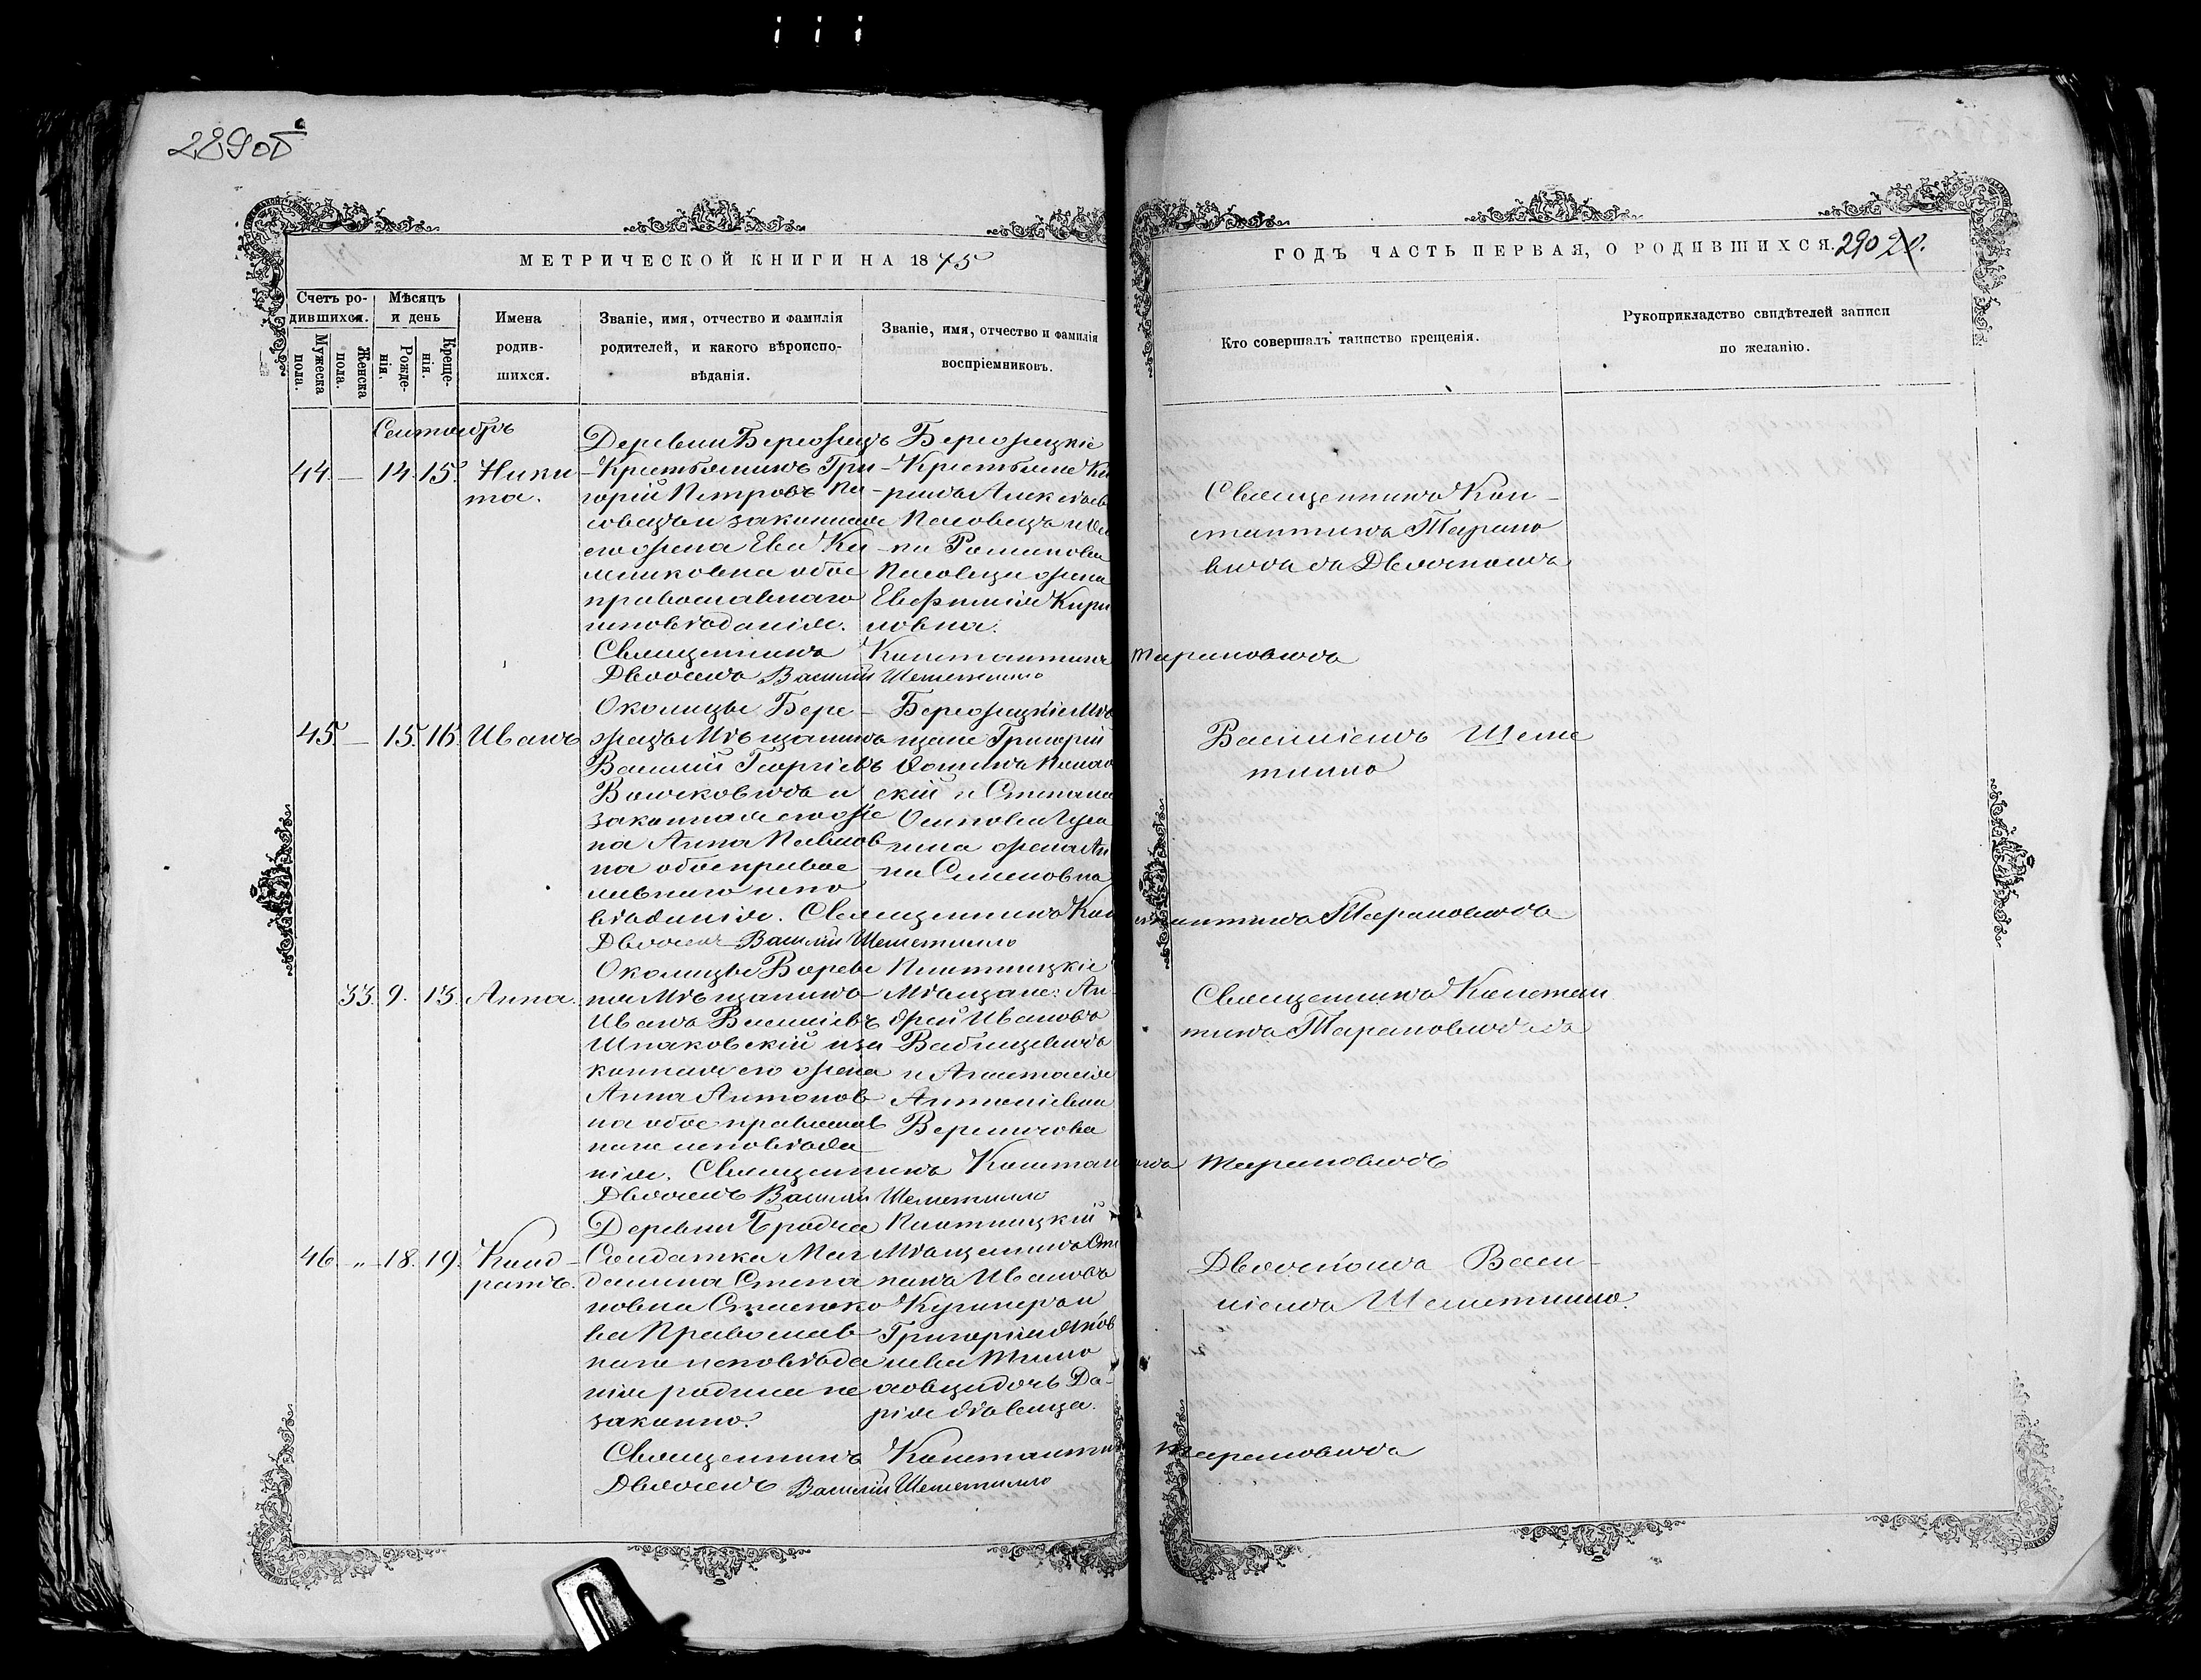 289об
МЕТРИЧЕСКОЙ КНИГИ НА 1875
ГОДЪ ЧАСТЬ ПЕРВАЯ, О РОДИВШИХСЯ. 290
Счетъ ро-
дившихся.
Мужеска
пола.
Женска
пола.
Мѣсяцъ
и день
Рожде-
нія.
Креще-
нія.
Имена
родив-
шихся.
Званіе, имя, отчество и фамилія
родителей, и какого вѣроиспо-
вѣданія.
Званіе, имя, отчество и фамилія
воспріемниковъ.
Кто совершалъ таинство крещенія.
Рукоприкладство свидѣтелей записи
по желанію.
Сентябрь
44. — 14. 15. Ники
та.
Деревни Бережецъ
Крестьянинъ Гри
горій Петровъ
и законная
его жена Ева
обое
православнаго
исповѣданія.
Бережецкіе
Крестьяне
Романова
жена
Евфимія Кири
ловна.
Священникъ Кон-
стантинъ Тарано
вичъ съ Дьячкомъ
Священникъ Константинъ Тарановичъ
Дьячекъ Василій Шеметилло
45. — 15. 16. Иванъ
Околицы Бере-
жецъ Мѣщанинъ
Василій Георгіевъ
и
законная его же
на Анна Павлов
на обое правос
лавнаго испо
вѣданія.
Бережецкіе Мѣ
щане Григорій
скій и Степана
жена Ан
на Семеновна
Василіемъ Шеме
тилло
Священникъ Константинъ Тарановичъ
Дьячекъ Василій Шеметилло
33. 9. 13. Анна.
Околицы
Мѣщанинъ
Иванъ Василіевъ
Шпаковскій и за
конная его жена
Анна Антонов
на обое православ
наго исповѣда
нія.
Мѣщане: Ан-
дрей Ивановъ
и Анастасія
Антоніевна
Священникъ Констан
тинъ Тарановичъ
Священникъ Константинъ Тарановичъ
Дьячекъ Василій Шеметилло
46. „ 18. 19. Конд-
ратъ.
Деревни Бродча
Солдатка Маг
далина Степа
новна
ва Православ
наго исповѣда
нія родила не
законно.
Мѣщанинъ Сте
панъ Ивановъ
дочь Да-
рія дѣвица.
Дьячкомъ Васи-
ліемъ Шеметилло.
Священникъ Константинъ Тарановичъ
Дьячекъ Василій Шеметилло